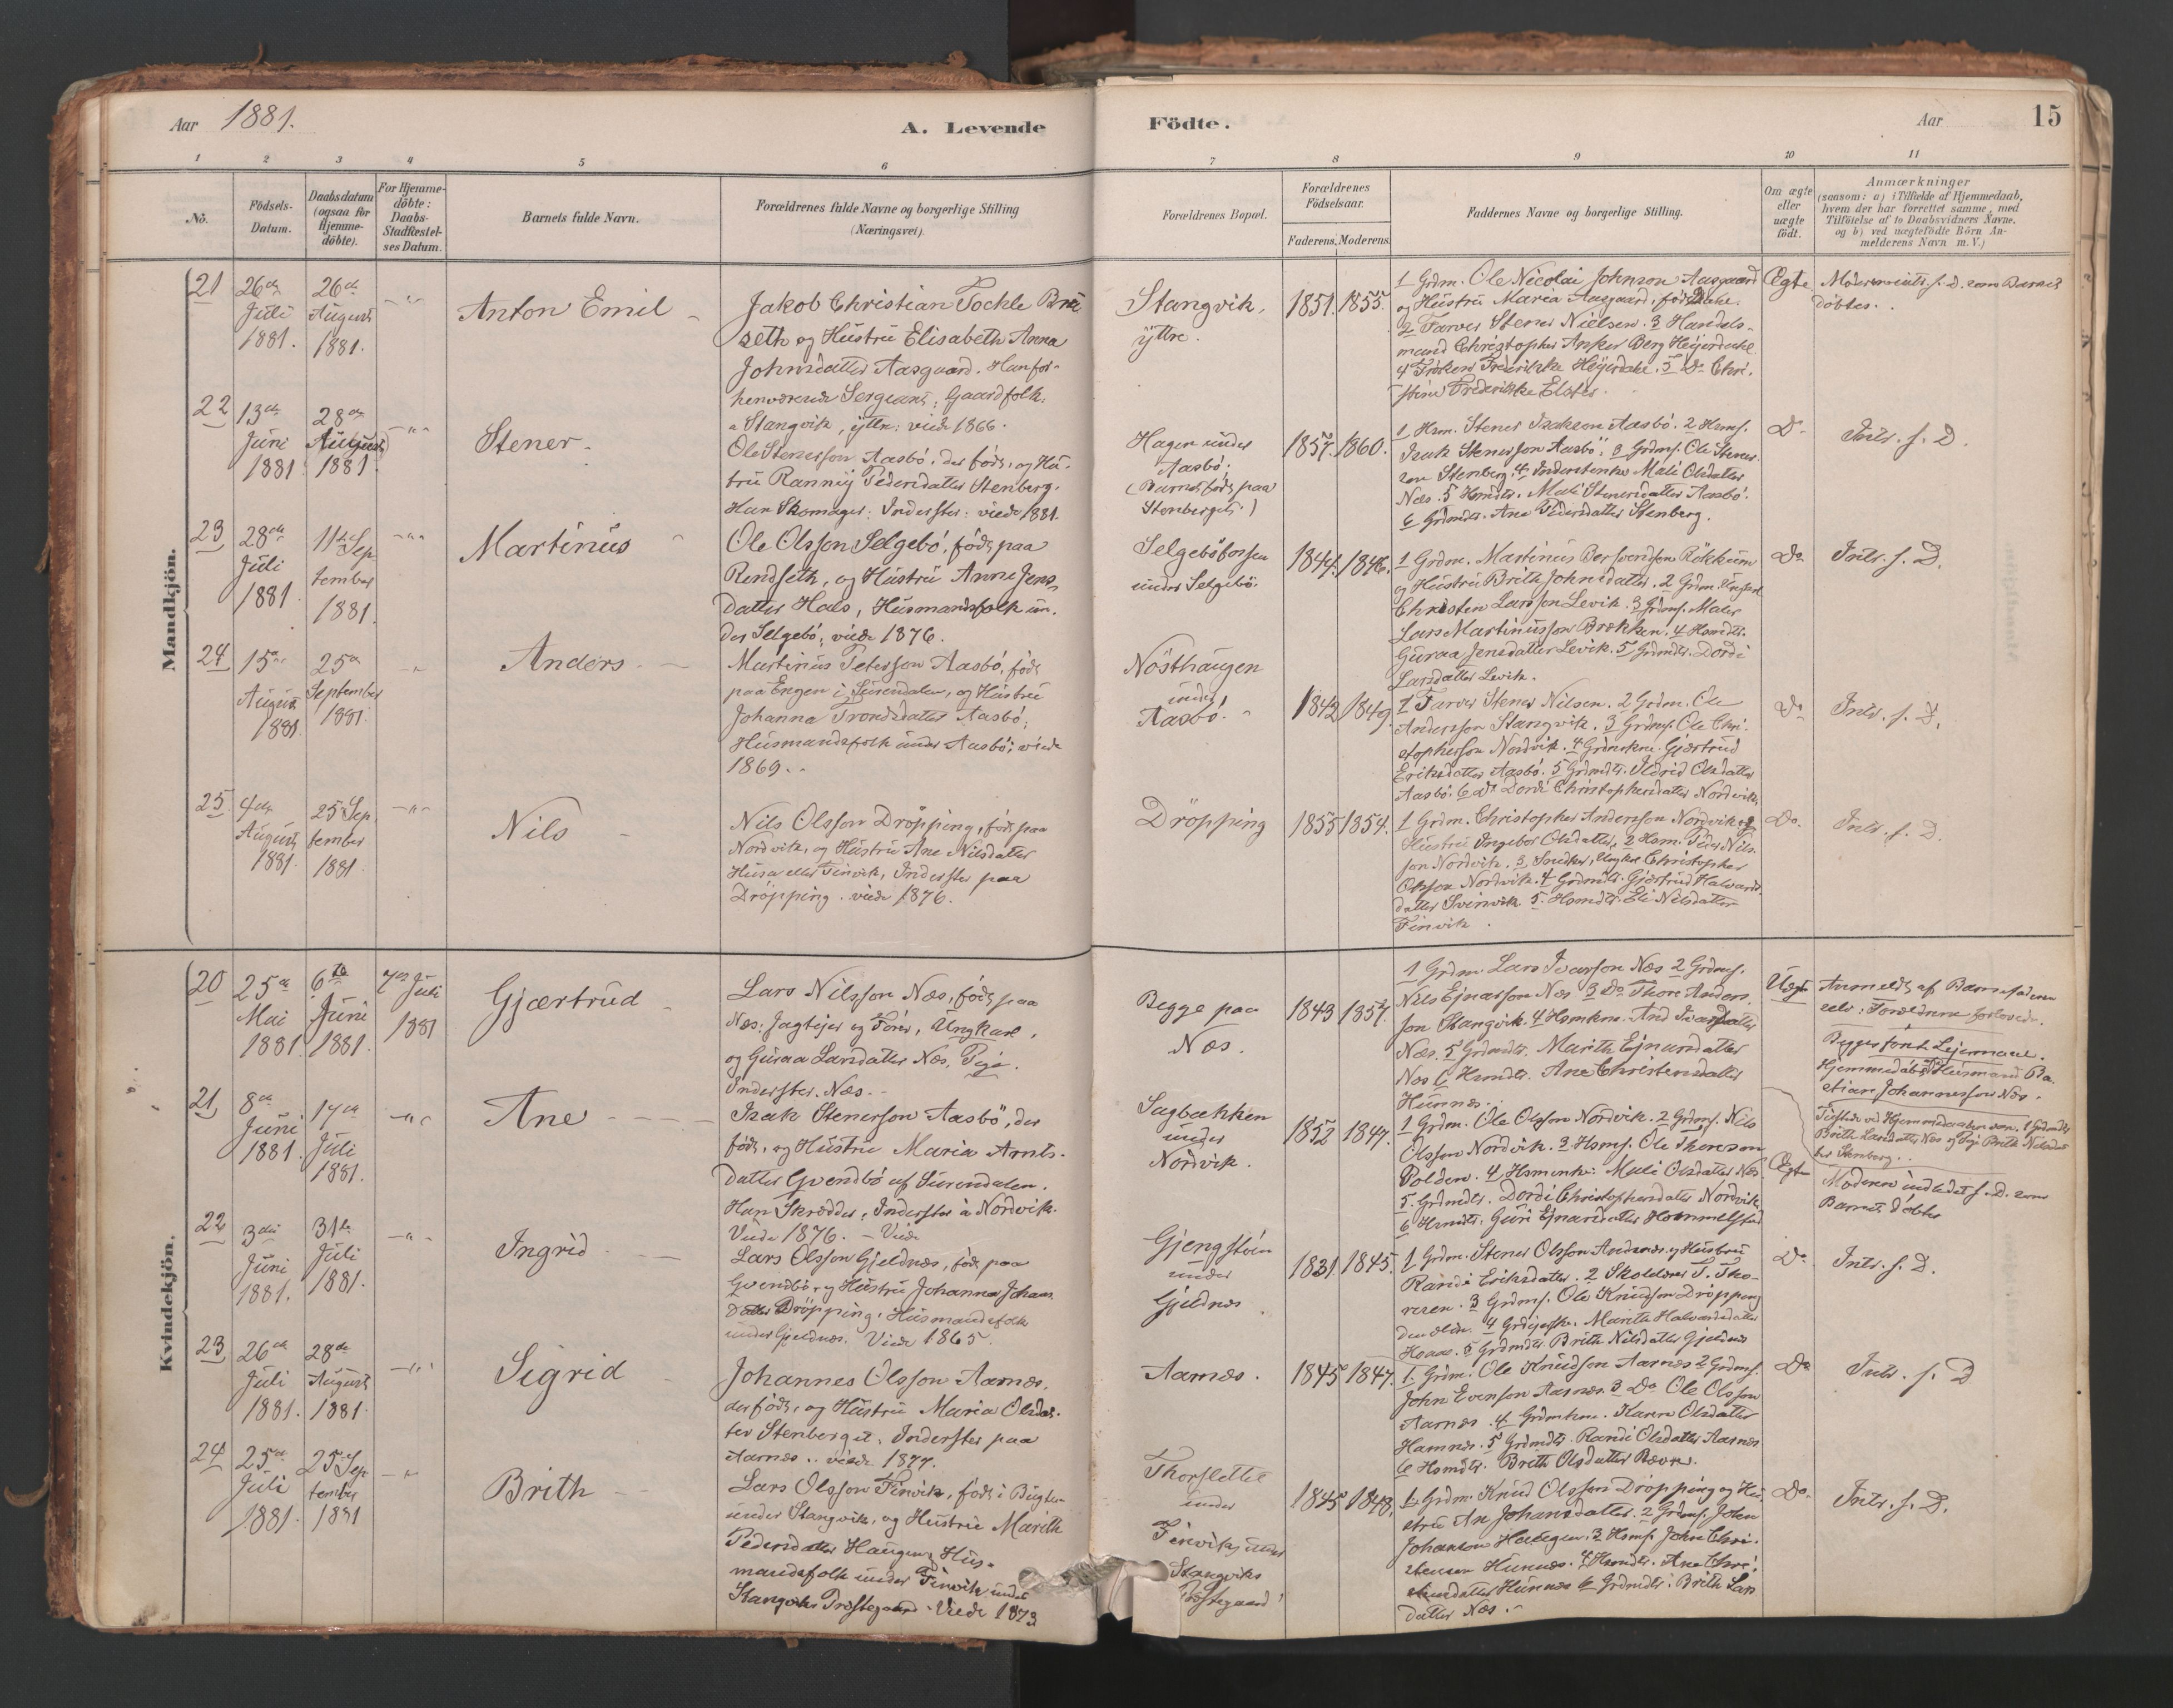 Aar 1881.
A. Levende
Födte.
Aar
15
1 2 3 4 5 6 7 8 9 10 11
No.
Födsels-
Datum.
Daabsdatum
(ogsaa for
Hjemme-
döbte).
For Hjemme-
döbte:
Daabs-
Stadfæstel-
ses Datum.
Barnets fulde Navn.
Forældrenes fulde Navne og borgerlige Stilling
(Næringsvei).
Forældrenes Bopæl.
Forældrenes
Födselsaar.
Faderens. Moderens.
Faddernes Navne og borgerlige Stilling.
Om ægte
eller
uægte
födt.
Anmærkninger
(saasom: a) i Tilfælde af Hjemmedaab,
hvem der har forrettet samme, med
Tilföielse af to Daabsvidners Navne.
og b) ved uægtefödte Börn An-
melderens Navn m. V.)
Mandkjön.
21
26de
Juli
1881.
26de
August
1881.
Anton Emil
Jakob Christian Tockle Bræ
seth og Hustru Elisabeth Anna
Johnsdatter Aasgaard. Han for-
henværende Sergeant; Gaardfolk
a Stangvik, yttre: viede 1866.
Stangvik,
yttre.
1851. 1855.
1 Grdm. Ole Nicolai Johnson Aasgaard
og Hustru Maria Aasgaard, född
2 Farver Stener Nielsen. 3 Handels-
mand Christopher Anker Berg Heyerdahl
4 Fröken Frederikke Heyerdahl. 5 Do Chri-
stine Frederikke Elster.
Ægte
s. D. som Barnet
döbtes.
22
13de
Juni
1881.
28de
August
1881.
Stener
Ole Stenersson Aasbö, der född, og Hu-
stru Rannej Pedersdatter Stenberg.
Han Skomager: Inderster: viede 1881.
Hagen under
Aasbö.
(Barnet född paa
Stenberget.)
1857. 1860.
1 Hsm. Stener Isakson Aasbö. 2 Hsmsf.
Isak Stenersson Aasbö. 3 Grdmsf. Ole Stener-
son Stenberg. 4 Inderstenke Mali Olsdatter
Næs. 5 Hsmdtr. Mali Stenersdatter Aasbö.
6 Grdmdtr. Ane Pedersdatter Stenberg.
Do
Intr. s. D.
23
28de
Juli
1881
11te Sep-
tember
1881.
Martinus
Ole Olsson Selgebö, född paa
Rendseth, og Hustru Anne Jens-
datter Hals, Husmandsfolk un-
der Selgebö; viede 1876.
Selgeböfossen
under Selgebö.
1844. 1846.
1 Grdm. Martinus Bersvendson Rökkum
og Hustru Brith Johnsdatter. 2 Grdm. Ungkarl
Christen Larsson Levik. 3 Grdmsf. Maler
Lars Martinusson Brekken. 4 Hsmdtr.
Guraa Jensdatter Levik. 5 Grdmdtr. Dordi
Larsdatter Levik.
Do
Intr. s. D.
24
15de
August
1881.
25de
September
1881.
Anders
Martinus Peterson Aasbö, född
paa Engen i Surendalen, og Hustru
Johanna Trondsdatter Aasbö;
Husmandsfolk under Aasbö; viede
1869.
Nösthaugen
under
Aasbö.
1842 1849.
1 Farver Stener Nilsen. 2 Grdm. Ole
Andersson Stangvik. 3 Grdmsf. Ole Chri-
stophersson Nordvik. 4 Grdmskone Gjertrud
Eriksdatter Aasbö. 5 Grdmdtr. Ildrid Olsdatter
Aasbö. 6 Do Dordi Christophersdatter Nordvik.
Do
Intr. s. D.
25
4de
August
1881.
25 Sep-
tember
1881.
Nils
Nils Olsson Dröpping, född paa
Nordvik, og Hustru Ane Nilsdatter
Husa eller Finvik, Inderster paa
Dröpping. viede 1876.
Dröpping
1855 1854.
1 Grdm. Christopher Andersson Nordvik og
Hustru Ingebor Olsdatter. 2 Hsm. Peder Nils-
son Nordvik. 3 Snedker, Ungkarl Christopher
Olsson Nordvik. 4 Grdmdtr. Gjertrud Halvards-
datter Svinvik. 5 Hsmdtr. Eli Nilsdatter
Finvik.
Do.
Intr. s. D.
Kvindekjön.
20
25de
Mai
1881.
6te
Juni
1881.
7de Juli
1881
Gjærtrud
Lars Nilsson Næs, född paa
Næs; Jagteier og Förer, Ungkarl,
og Guraa Larsdatter Næs, Pige.
Inderster. Næs.
Begge paa
Næs.
1843 1857.
1 Grdm. Lars Ivarson Næs 2 Grdmsf.
Nils Ejnarsson Næs 3 Do Thore Anders-
son Stangvik. 4 Hsmkone And Ivarsdatter
Næs. 5 Grdmdtr. Marith Ejnarsdatter
Næs 6 Hsmdtr. Ane Christensdatter
Hunnes.
Uægte
Anmeldt af Barnefaderen
selv: Forældrene forlovede.
Begges förste Leiermaal.
Hjemmedöbt af Husmand Ba-
stian Johannesson Næs.
Tilstede ved Hjemmedaaben var: 1 Grdmdtr
Brith Larsdatter Næs og Pige Brith Nilsdat-
ter Stenberg.
21
8de
Juni
1881.
17de
Juli
1881.
Ane
Isak Stenerson Aasbö, der
född, og Hustru Maria Arnts-
datter Gvendbö af Surendalen.
Han Skrædder, Inderster a Nordvik.
Viede 1876.
Sagbakken
under
Nordvik.
1852 1847.
1 Grdm. Ole Olsson Nordvik. 2 Grdmsf. Nils
Olsson Nordvik. 3 Hsmsf. Ole Thoreson
Polden. 4 Hsmenke: Mali Olsdatter Næs.
5. Grdmdtr. Dordi Christophersdatter Nordvik.
6 Hsmdtr. Guri Ejnarsdatter Hommelstad
Ægte
Moderen indledet s. D. som
Barnet döbtes
22
3die
Juni
1881.
31te
Juli
1881.
Ingrid
Lars Olsson Gjeldnæs, född paa
Gvendbö, og Hustru Johanna Johans-
datter Dröpping, Husmandsfolk
under Gjeldnæs. Viede 1865.
Gjengstöen
under
Gjeldnæs
1831. 1845.
1 Grdm. Stener Olsson Andernæs og Hustru
Randi Eriksdatter. 2 Skolelærer T. Tho-
resen. 3 Grdmsf. Ole Knudson Dröpping
den ældre. 4 Grdejerske Marith Halvardsdatter
Hoaas. 5 Grdmdtr. Brith Nilsdatter Gjeldnæs
Do
Intr. s. D.
23
26de
Juli
1881.
28de
August
1881.
Sigrid
Johannes Olsson Aarnæs,
der född, og Hustru Maria Olsdat-
ter Stenberget, Inderster paa
Aarnæs. viede 1877.
Aarnæs.
1845 1847.
1. Grdm. Ole Knudson Aarnæs 2 Grdmsf.
John Evenson Aarnæs. 3 Do Ole Olsson
Aarnæs. 4 Grdmkone. Karen Olsdatter
Hamnes. 5 Grdmdtr. Randi Olsdatter Aarnæs
6 Hsmdtr. Brith Olsdatter Bævre.
Do
Intr. s. D
24
25de
Juli
1881.
25 Sep-
tember
1881
Brith
Lars Olsson Finvik, född i Bugten
under Stangvik, og Hustru Marith
Pedersdatter Haugen, Hus-
mandsfolk under Finvik under
Stangviks Præstegaard. Viede 1873
Thorslette
under
Finvik under
Stangviks
Præstegaard
1845 1848.
1. Grdm. Knud Olsson Dröpping og Hu-
stru An Johansdatter. 2 Grdmsf. John
Johanson 3 Hsmsf. John Chri-
stensen Hunnes. 4 Hsmdtr. Ane Chri-
stensdatter Hunnes 6 Grdmdtr. Brith Lars-
datter Næs.
Do.
Intr. s. D.